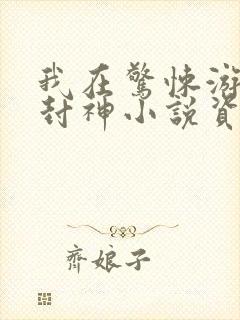 我在驚悚游
封神小說資
齊娘子